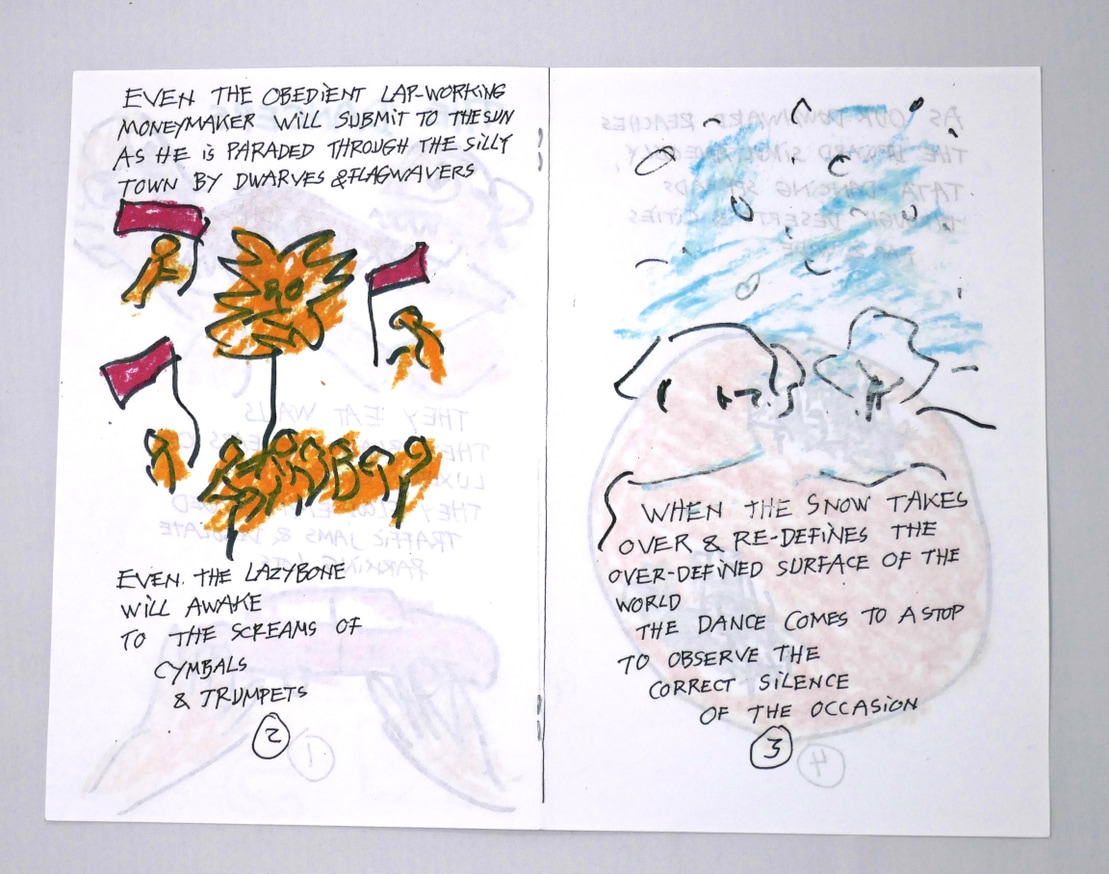 EVEN THE OBEDIENT LAP-WORKING
MONEYMAKER WILL SUBMIT TO THE SUN
AS HE IS PARADED THROUGH THE SILLY
TOWN BY DWARVES & FLAGWAVERS
EVEN THE LAZYBONE
WILL AWAKE
TO THE SCREAMS OF
CYMBALS
& TRUMPETS
2
WHEN THE SNOW TAKES
OVER & RE-DEFINES THE
OVER-DEFINED SURFACE OF THE
WORLD
THE DANCE COMES TO A STOP
TO OBSERVE THE
CORRECT SILENCE
OF THE OCCASION
3